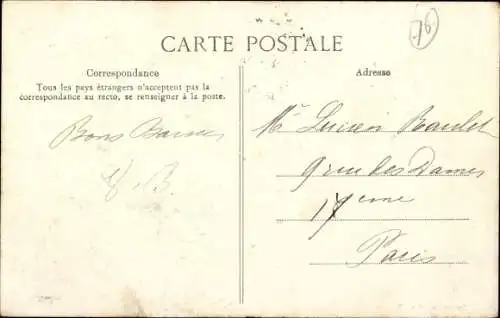 76
CARTE POSTALE
Correspondance
Tous les pays étrangers n'acceptent pas la
correspondance au recto, se renseigner à la poste.
Adresse
Bons Baisers
Mr Lucien
9 rue des Dames
17eme
Paris